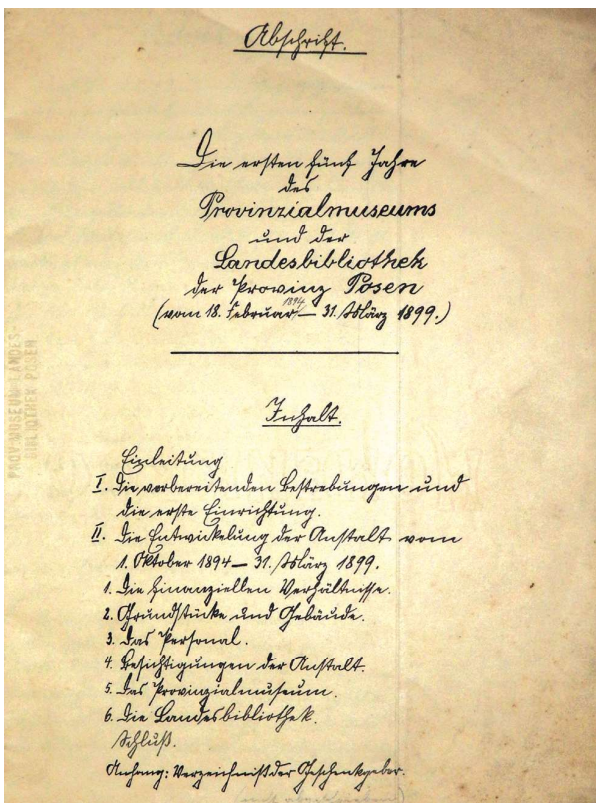 Abschrift.
Die ersten fünf Jahre
des
Provinzialmuseums
und der
Landesbibliothek
der Provinz Posen
(vom 18. Februar 1894 — 31. März 1899.)
Inhalt.
Einleitung
I. Die vorbereitenden Bestrebungen und
die erste Einrichtung.
II. Die Entwickelung der Anstalt vom
1. Oktober 1894 — 31. März 1899.
1. Die finanziellen Verhältnisse.
2. Grundstücke und Gebäude.
3. Das Personal.
4. Besichtigungen der Anstalt.
5. Das Provinzialmuseum.
6. Die Landesbibliothek.
Schluß.
Anhang: Verzeichniß der Geschenkgeber.
PROV. MUSEUM LANDES-
BIBLIOTHEK POSEN